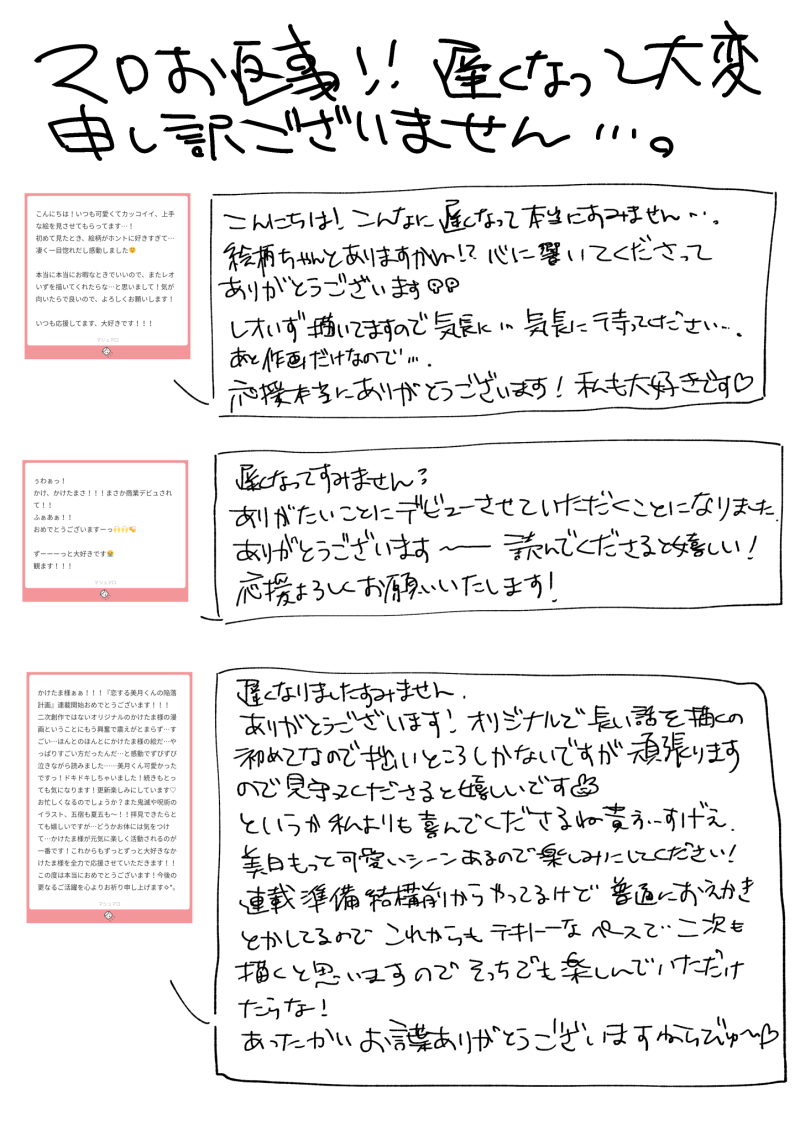 マロお返事!! 遅くなって大変
申し訳ございません…。
こんにちは！いつも可愛くてカッコイイ、上手
な絵を見させてもらってます…！
初めて見たとき、絵柄がホントに好きすぎて…
凄く一目惚れだし感動しました😢
本当に本当にお暇なときでいいので、またレオ
いずを描いてくれたらな…と思いまして！気が
向いたらで良いので、よろしくお願いします！
いつも応援してます、大好きです！！！
マシュマロ
こんにちは! こんなに遅くなって本当にすみません…。
絵柄ちゃんとありますかね!? 心に響いてくださって
ありがとうございます
レオいず描いてますので気長に…気長に待ってください…。
あと作画だけなので…。
応援本当にありがとうございます! 私も大好きです♡
ぅわぁっ！
かけ、かけたまさ！！！まさか商業デビュされ
て！！
ふぁあぁ！！
おめでとうございますーっ🙌🙌👏
ずーーーっと大好きです😭
観ます！！！
マシュマロ
遅くなってすみません?
ありがたいことにデビューさせていただくことになりました.
ありがとうございます〜— 読んでくださると嬉しい!
応援よろしくお願いいたします!
かけたま様ぁぁ！！！『恋する美月くんの陥落
計画』連載開始おめでとうございます！！！
二次創作ではないオリジナルのかけたま様の漫
画ということにもう興奮で震えがとまらず…す
ごい…ほんとのほんとにかけたま様の絵だ…や
っぱりすごい方だったんだ…と感動ですびずび
泣きながら読みました……美月くん可愛かった
ですっ！ドキドキしちゃいました！続きもとっ
ても気になります！更新楽しみにしています♡
お忙しくなるのでしょうか？また鬼滅や呪術の
イラスト、五宿も夏五も〜！！拝見できたらと
ても嬉しいですが…どうかお体には気をつけ
て…かけたま様が元気に楽しく活動されるのが
一番です！これからもずっとずっと大好きなか
けたま様を全力で応援させていただきます！！
この度は本当におめでとうございます！今後の
更なるご活躍を心よりお祈り申し上げます✧*。
マシュマロ
遅くなりましたすみません.
ありがとうございます! オリジナルで長い話を描くの
初めてなので拙いところしかないですが頑張ります
ので見守ってくださると嬉しいです
というか私よりも喜んでくださるね貴方…すげえ.
美月もっと可愛いシーンあるので楽しみにしてください!
連載準備結構前からやってるけど普通におえかき
とかしてるので これからもテキトーなペースで…二次も
描くと思いますのでそっちでも楽しんでいただけ
たらな!
あったかいお言葉ありがとうございますからびゅ〜♡